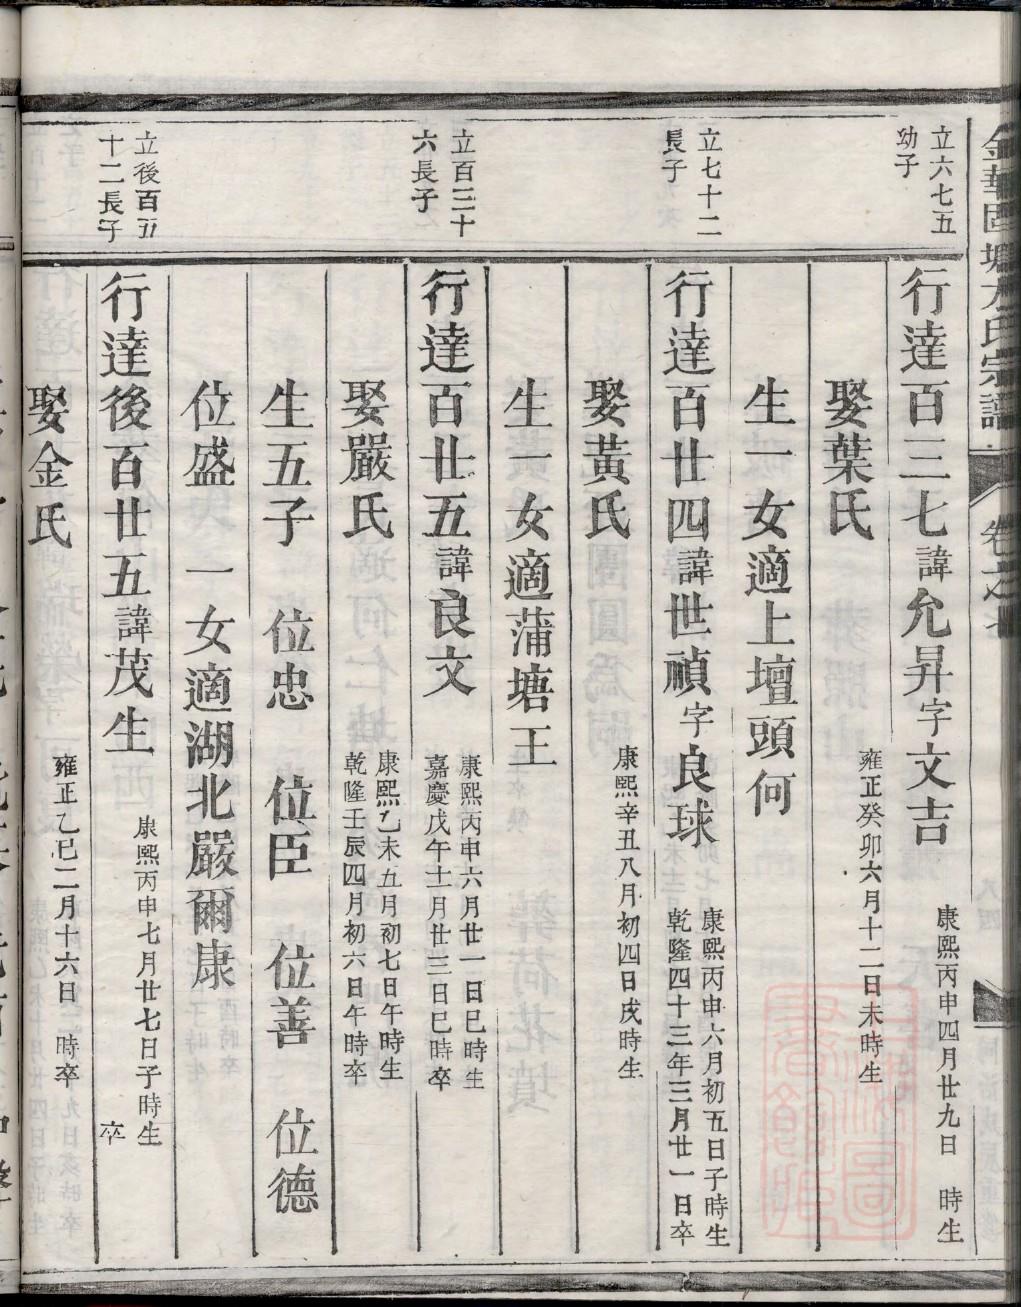 金華囙塘方氏宗譜
卷之
立六七五
幼子
行達百三七諱允昇字文吉
康熙丙申四月廿九日 時生
娶葉氏
雍正癸卯六月十二日未時生
生一女適上壇頭何
立七十二
長子
行達百廿四諱世禎字良球
康熙丙申六月初五日子時生
乾隆四十三年三月廿一日卒
娶黃氏
康熙辛丑八月初四日戌時生
生一女適蒲塘王
立百三十
六長子
行達百廿五諱良文
康熙丙申六月廿一日巳時生
嘉慶戊午十一月廿三日巳時卒
娶嚴氏
康熙乙未五月初七日午時生
乾隆壬辰四月初六日午時卒
生五子 位忠 位臣 位善 位德
位盛 一女適湖北嚴爾康
立後百五
十二長子
行達後百廿五諱茂生
康熙丙申七月廿七日子時生
卒
娶金氏
雍正乙巳二月十六日 時卒